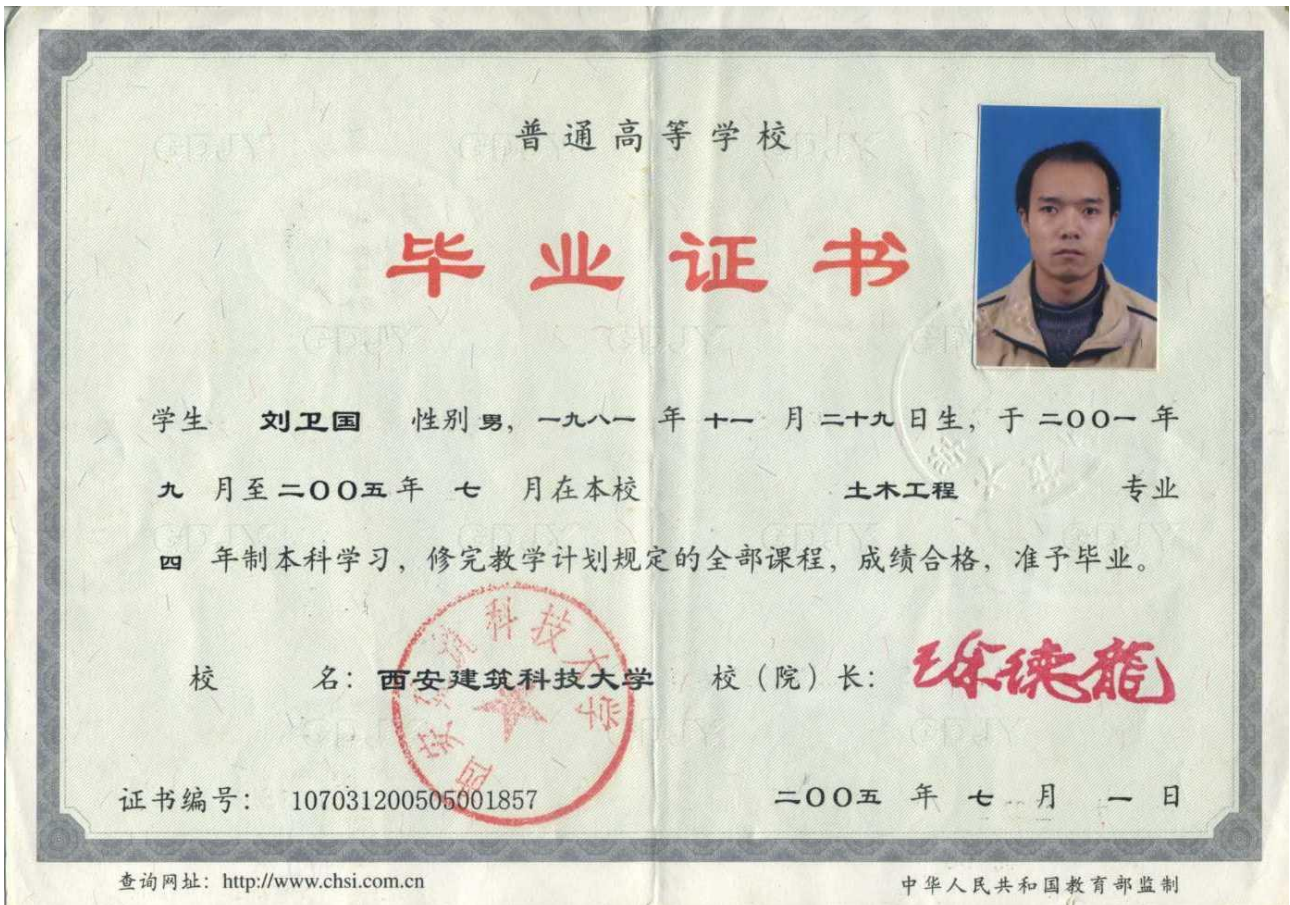 普通高等学校
毕业证书
学生 刘卫国 性别 男, 一九八一 年 十一 月 二十九 日生, 于 二〇〇一 年
九 月至 二〇〇五 年 七 月在本校 土木工程 专业
四 年制本科学习, 修完教学计划规定的全部课程, 成绩合格, 准予毕业。
校 名: 西安建筑科技大学 校(院)长: 徐德龙
西安建筑科技大学
证书编号: 107031200505001857 二〇〇五 年 七 月 一 日
查询网址: http://www.chsi.com.cn 中华人民共和国教育部监制